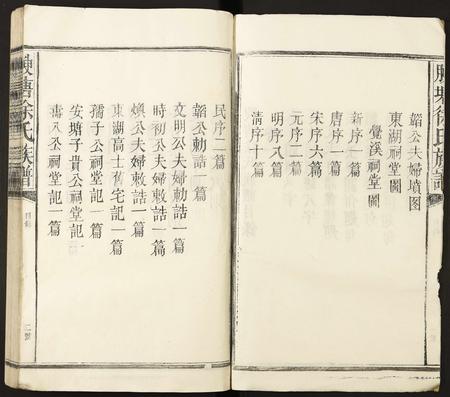 韜公夫婦墳图
東湖祠堂圖
覺溪祠堂圖
新序一篇
唐序一篇
宋序六篇
元序二篇
明序八篇
清序十篇
民序二篇
韜公勅誥一篇
文明公夫婦勅誥一篇
時初公夫婦敕誥一篇
煥公夫婦敕誥一篇
東湖高士旧宅記一篇
孺子公祠堂記一篇
安塘子貴公祠堂記一篇
公祠堂記一篇
徐氏族譜
目錄
二